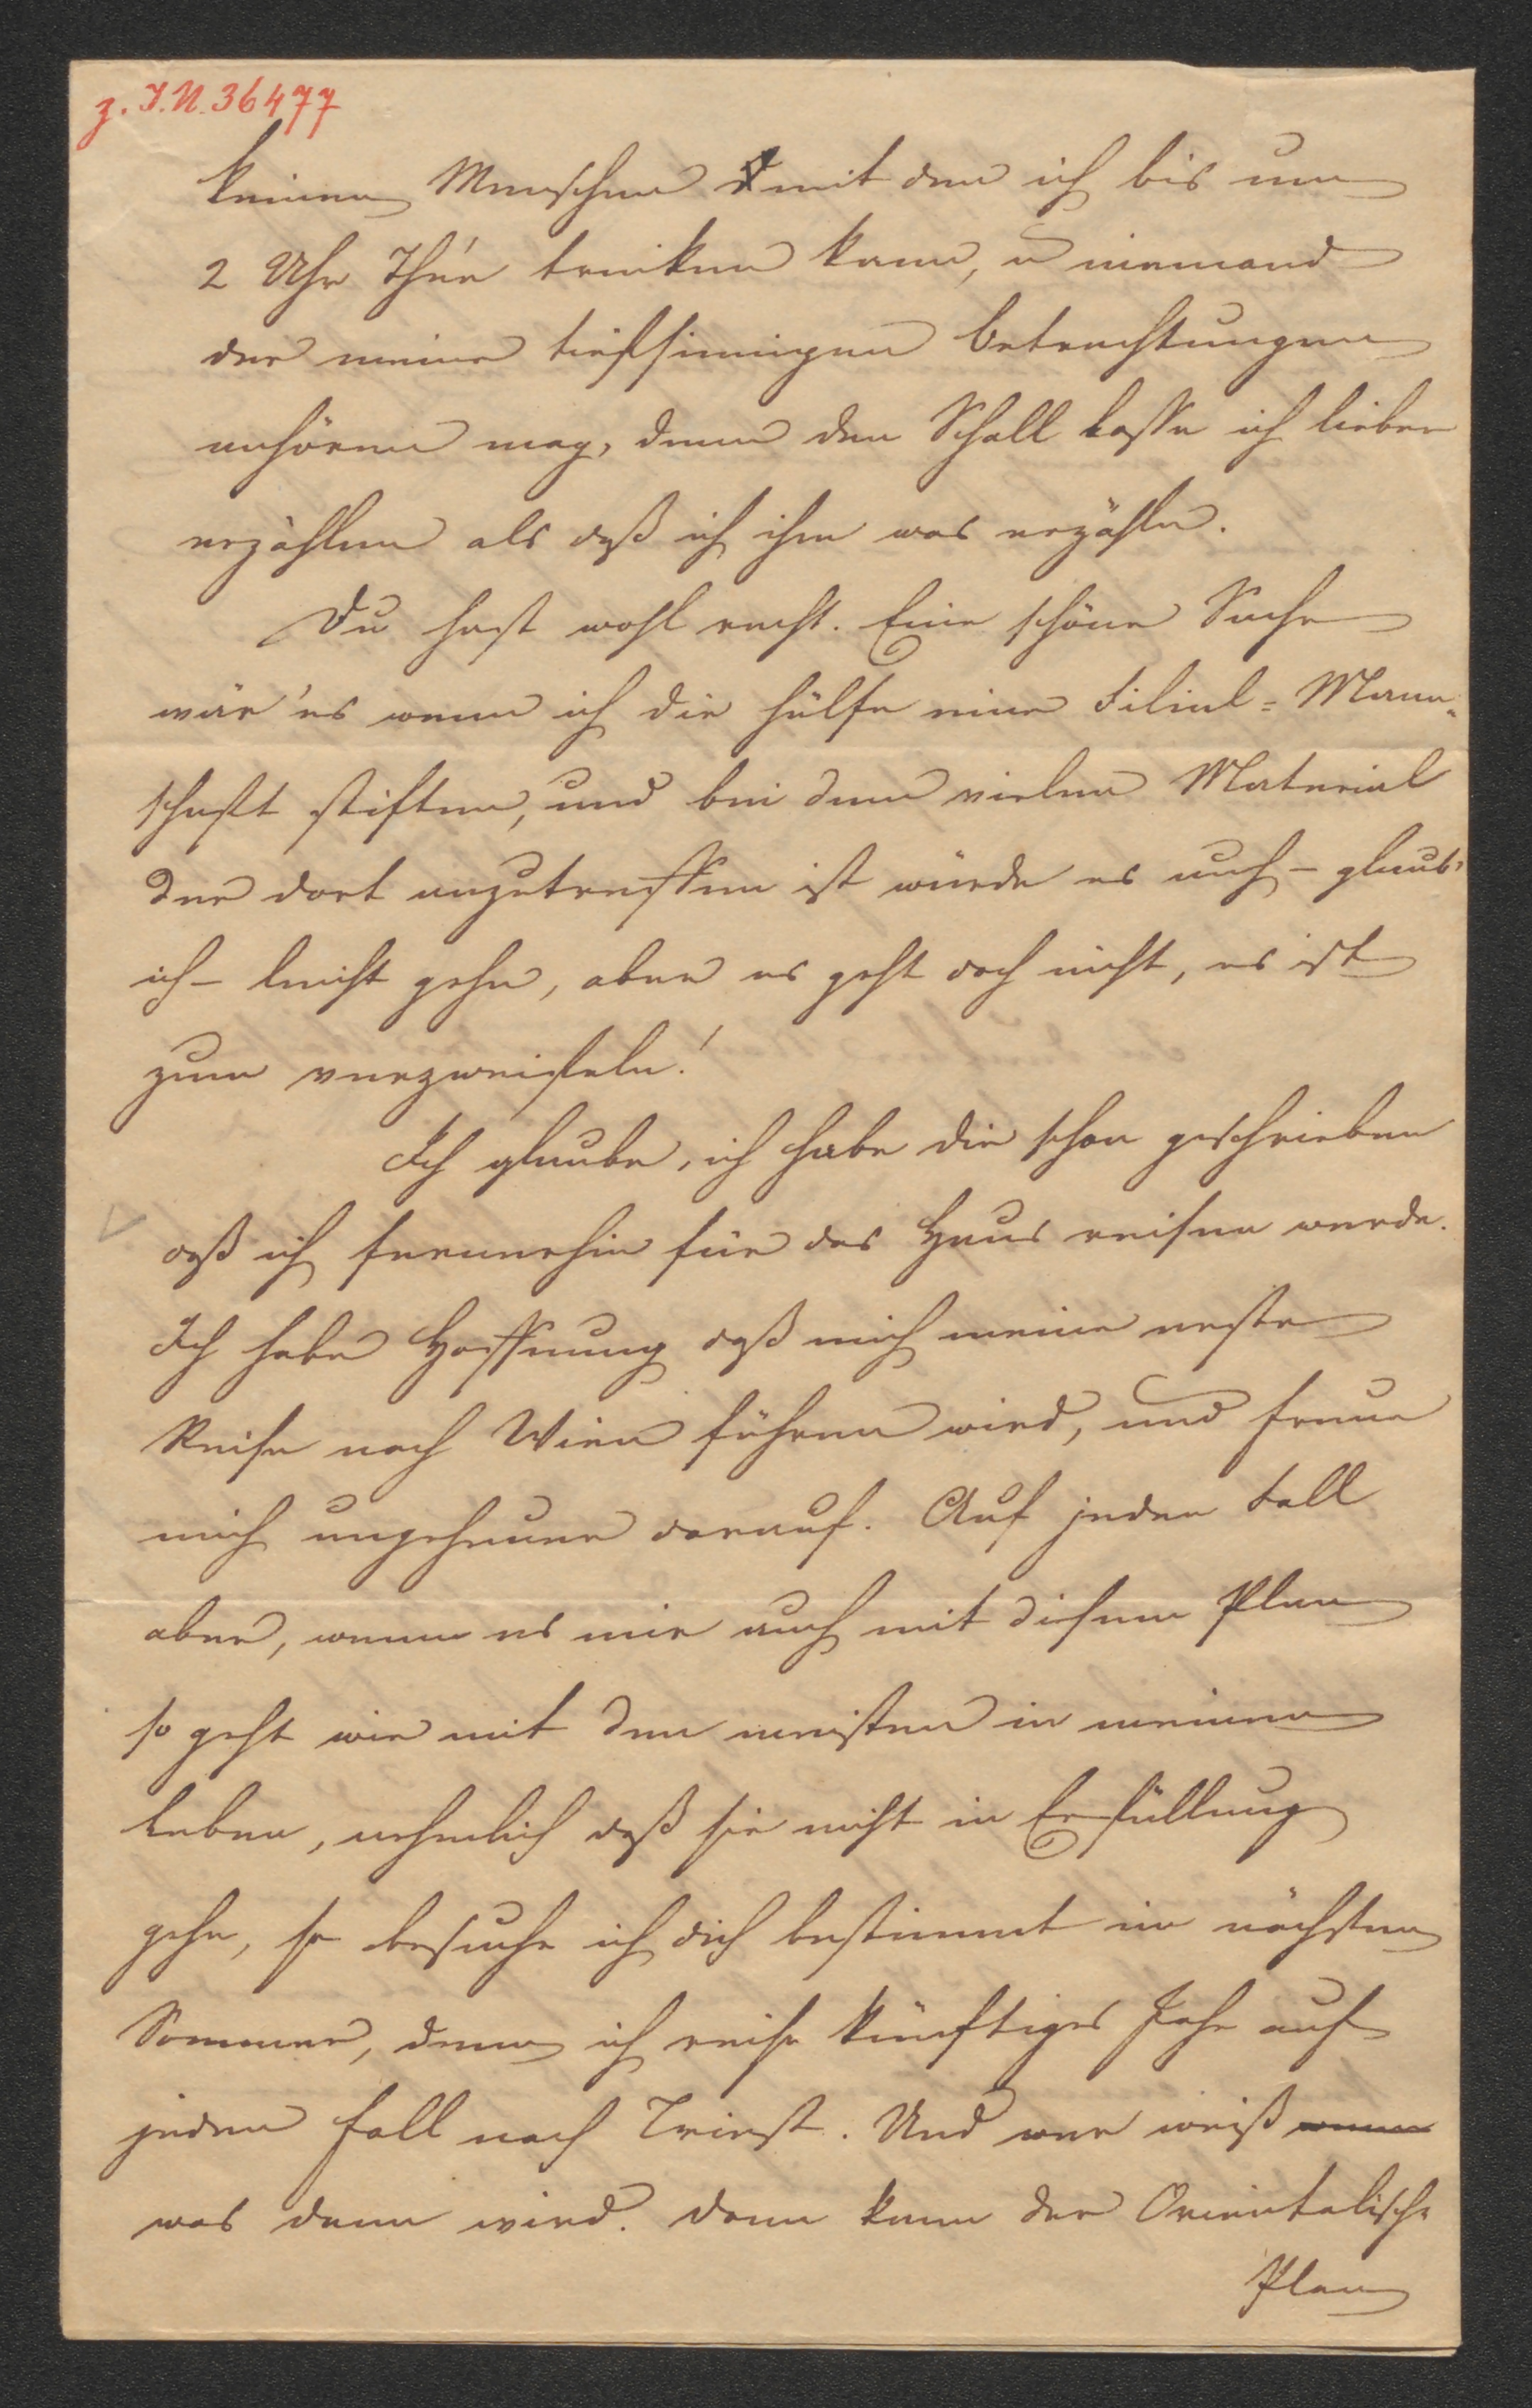 z. I.N. 36477
keinen Menschen mit dem ich bis um
2 Uhr Thée trinken kann, u niemand
der meine tiefsinnigen Betrachtungen
anhören mag, denn den Schall lasse ich lieber
erzählen als daß ich ihm was erzähle.
Du hast wohl recht. Eine schöne Sache
wär' es wenn ich die hülfe eine Filial=Mann=
schaft stiften, und bei dem vielen Material
der dort anzutreffen ist würde es auch – glaub'
ich – leicht gehn, aber es geht doch nicht, es ist
zum verzweifeln!
Ich glaube, ich habe dir schon geschrieben
daß ich fernerhin für das Haus reisen werde.
Ich habe Hoffnung daß mich meine erste
Reise nach Wien führen wird, und freue
mich ungeheuer darauf. Auf jeden Fall
aber, wenn es mir auch mit diesem Plan
so geht wie mit den meisten in meinem
Leben, nehmlich daß sie nicht in Erfüllung
gehn, so besuche ich dich bestimmt im nächsten
Sommer, denn ich reise künftiges Jahr auf
jeden Fall nach Triest. Und wer weiß
was dann wird. Dann kann der Orientalische
Plan